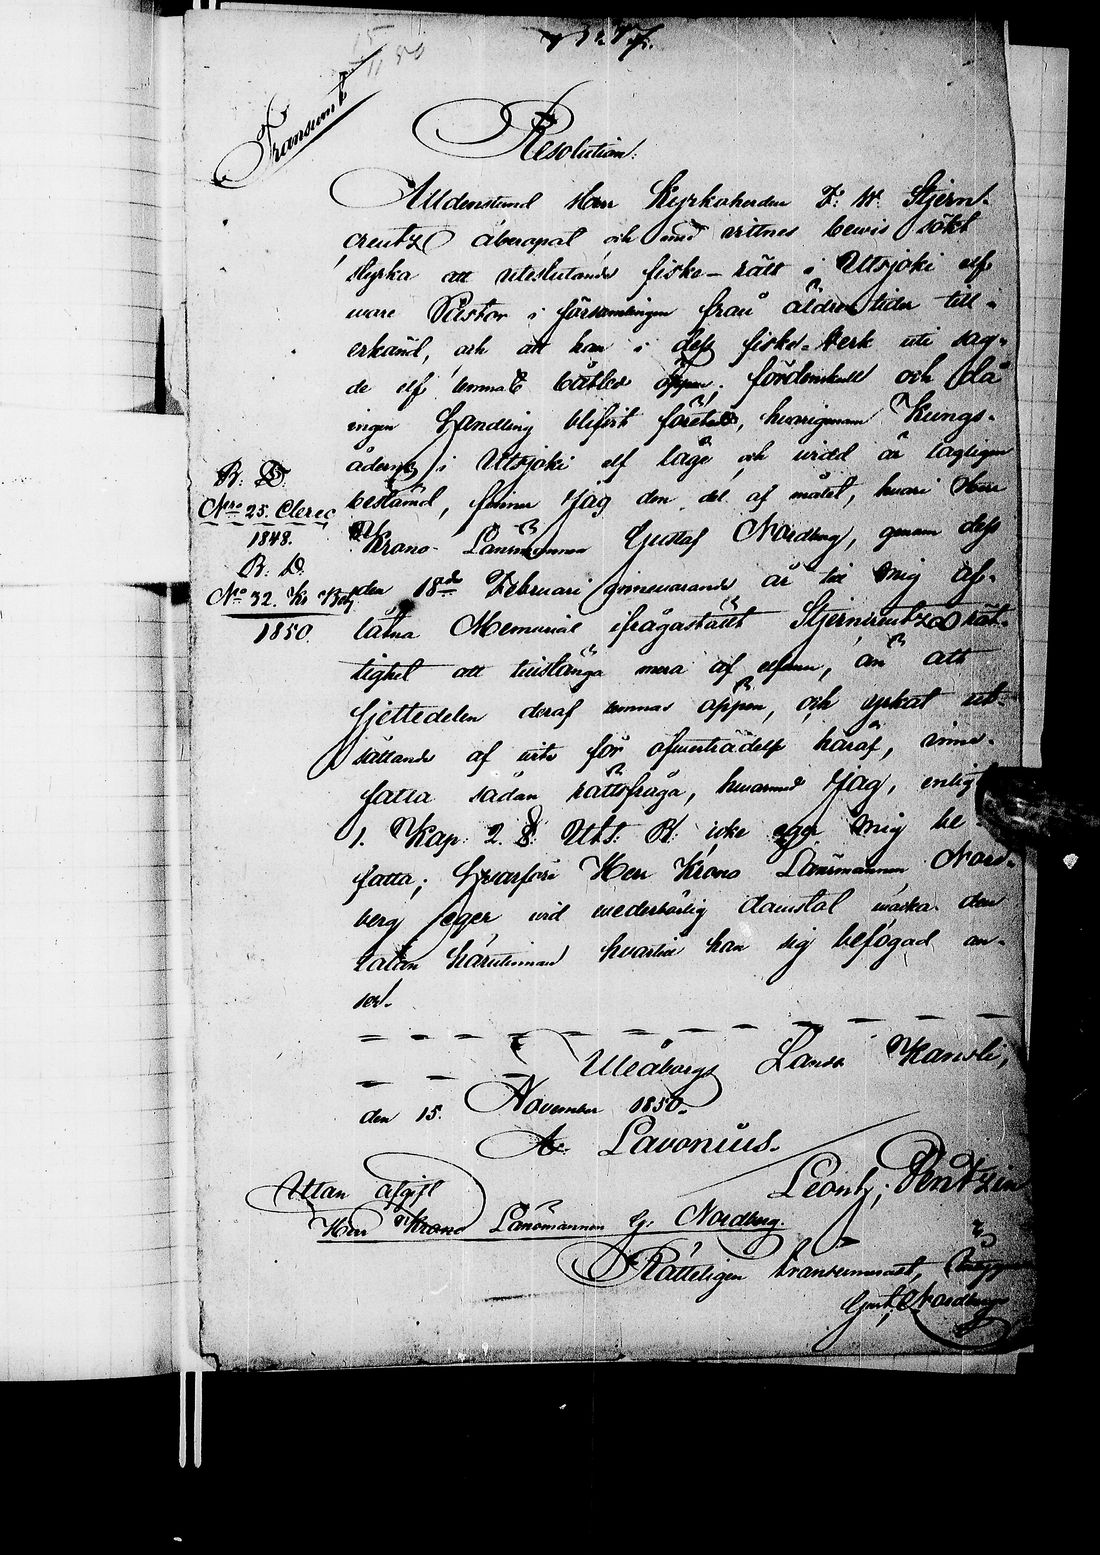 15/11 50
Transumt
Resolution:
Alldenstund Herr Kyrkoherden F. W. Stjern-
creutz åberopat, och med vittnes bewis sökt
styrka att uteslutande fiske-rätt i Utsjoki elf
ware Pastor i församlingen från äldre tider till-
erkänd, och att han i dess fiske-verk uti sag-
de elf lemnat båtled öppen; fördenskull och då
ingen Handling blifvit företedd, hvarigenom Kungs-
ådern i Utsjoki elf läge och vidd är lagligen
bestämd, finner Jag den del af målet, hvari Herr
Krono Länsmannen Gustaf Nordberg, genom dess
den 18de Februari innevarande år till mig af-
låtna Memorial ifrågastält Stjerncreutz rät-
tighet att tillstänga mera af elfven, än att
sjettedelen deraf lemnas öppen, och yrkat ut-
sättande af vite för öfverträdelse häraf, inne-
fatta sådan rättsfråga, hvarmed Jag, enligt
1. Kap. 2. §. Uts. B. icke eger mig be-
fatta; Hvarföre Herr Krono Länsmannen Nord-
berg eger vid vederbörlig domstol väcka den
talan härutinnan hvartill han sig befogad an-
ser.
R. D.
Nro 25. Clerec.
1848.
R. D.
No 32. Kr Betj
1850.
Uleåborgs Lands Kansli,
den 15. November 1850.
A. Lavonius.
Leont. Pentzin
Utan afgift
Herr Krono Länsmannen G. Nordberg.
Rätteligen transumeradt, betygar
Gust. Nordberg